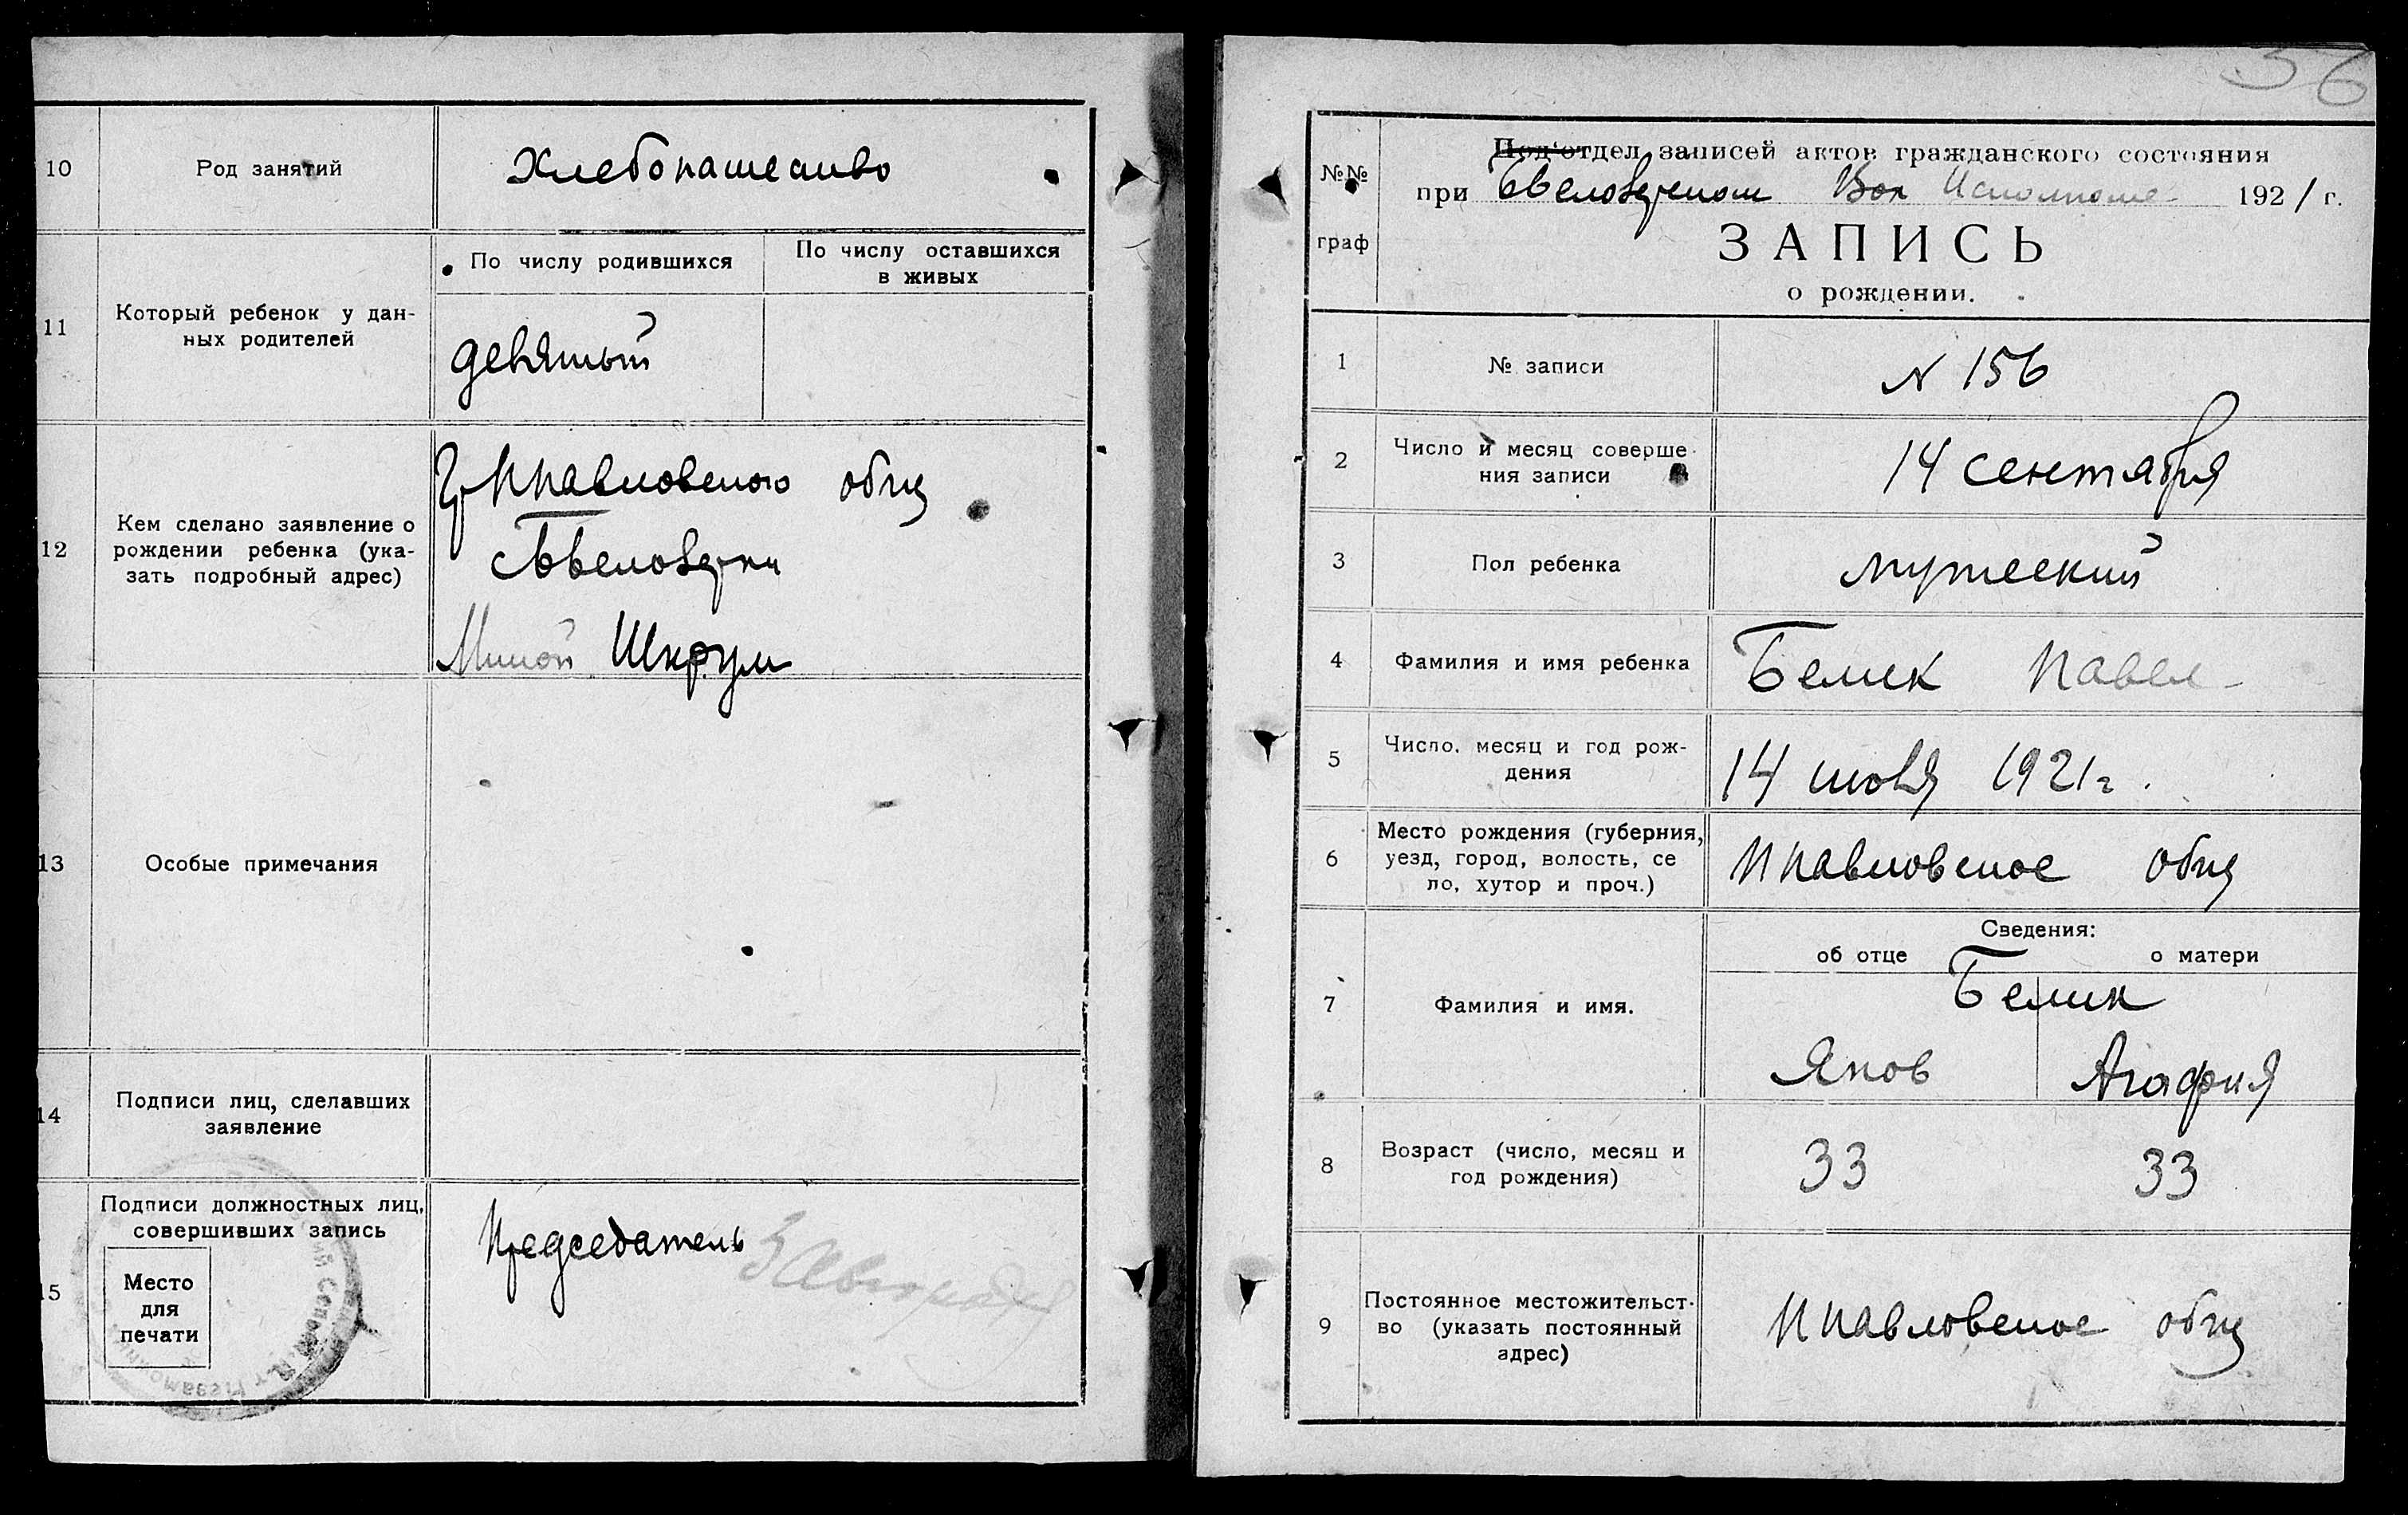 10
Род занятий
Хлебопашество
11
Который ребенок у дан-
ных родителей
По числу родившихся
По числу оставшихся
в живых
девятый
12
Кем сделано заявление о
рождении ребенка (ука-
зать подробный адрес)
Гр Ппавловского общ
с Ббелозерки
Шкрум
13
Особые примечания
14
Подписи лиц, сделавших
заявление
15
Подписи должностных лиц,
совершивших запись
Место
для
печати
Председатель
36
№№
граф
Под'отдел записей актов гражданского состояния
при Ббелозерском Вол Исполкоме 1921 г.
ЗАПИСЬ
о рождении.
1
№ записи
N 156
2
Число и месяц соверше-
ния записи
14 сентября
3
Пол ребенка
мужеский
4
Фамилия и имя ребенка
Белик Павел
5
Число, месяц и год рож-
дения
14 июля 1921 г.
6
Место рождения (губерния,
уезд, город, волость, се
ло, хутор и проч.)
Ппавловское общ
7
Фамилия и имя.
Сведения:
об отце
о матери
Белик
Яков
Агафия
8
Возраст (число, месяц и
год рождения)
33
33
9
Постоянное местожительст-
во (указать постоянный
адрес)
Ппавловское общ